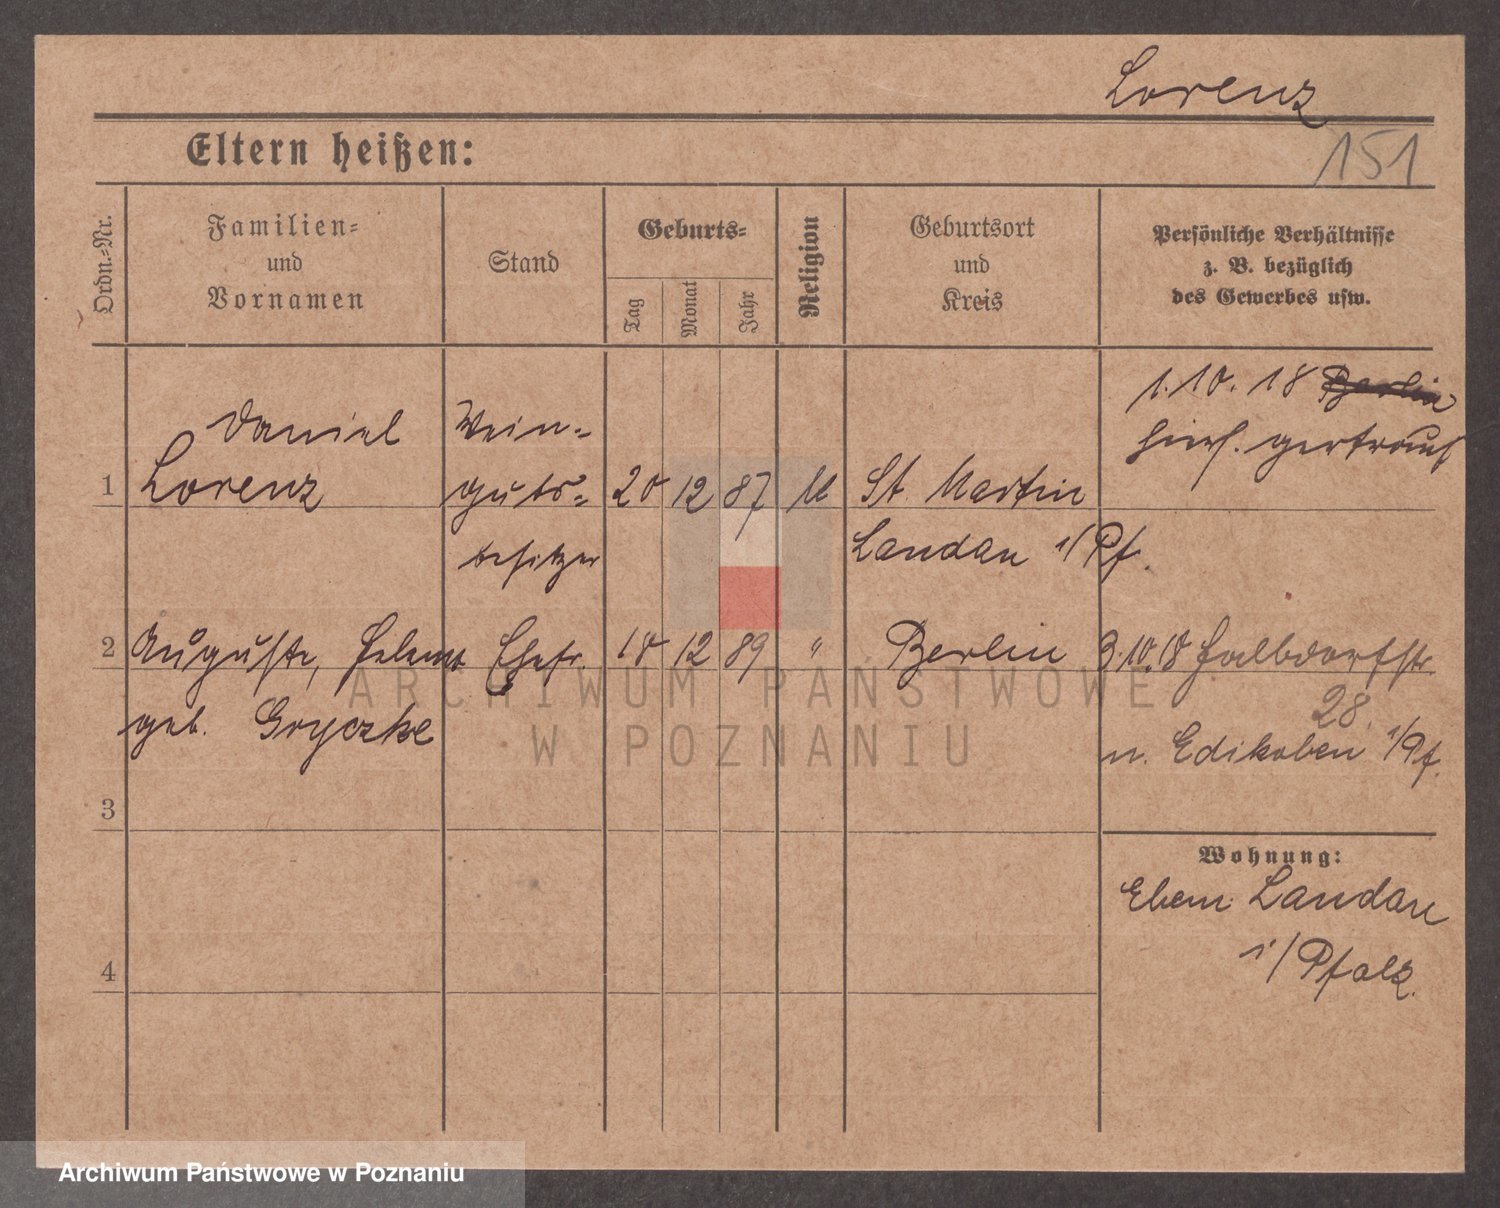 Lorenz
151
Eltern heißen:
Ordn.-Nr.
Familien- und Vornamen
Stand
Geburts-
Tag
Monat
Jahr
Religion
Geburtsort und Kreis
Persönliche Verhältnisse
z. B. bezüglich
des Gewerbes usw.
1. 10. 18 Berlin
hies. getraut
Daniel
Wein-
1 Lorenz guts- 20 12 87 St Martin
besitzer Landau i/Pf.
2 Auguste, Helene Ehefr. 18 12 89 " Berlin 3.10.18 Halbdorfstr.
28.
geb. Gryczke
n. Edikoben i/Pf.
3
Wohnung:
Landau
i/Pfalz.
4
ARCHIWUM PAŃSTWOWE
W POZNANIU
Archiwum Państwowe w Poznaniu